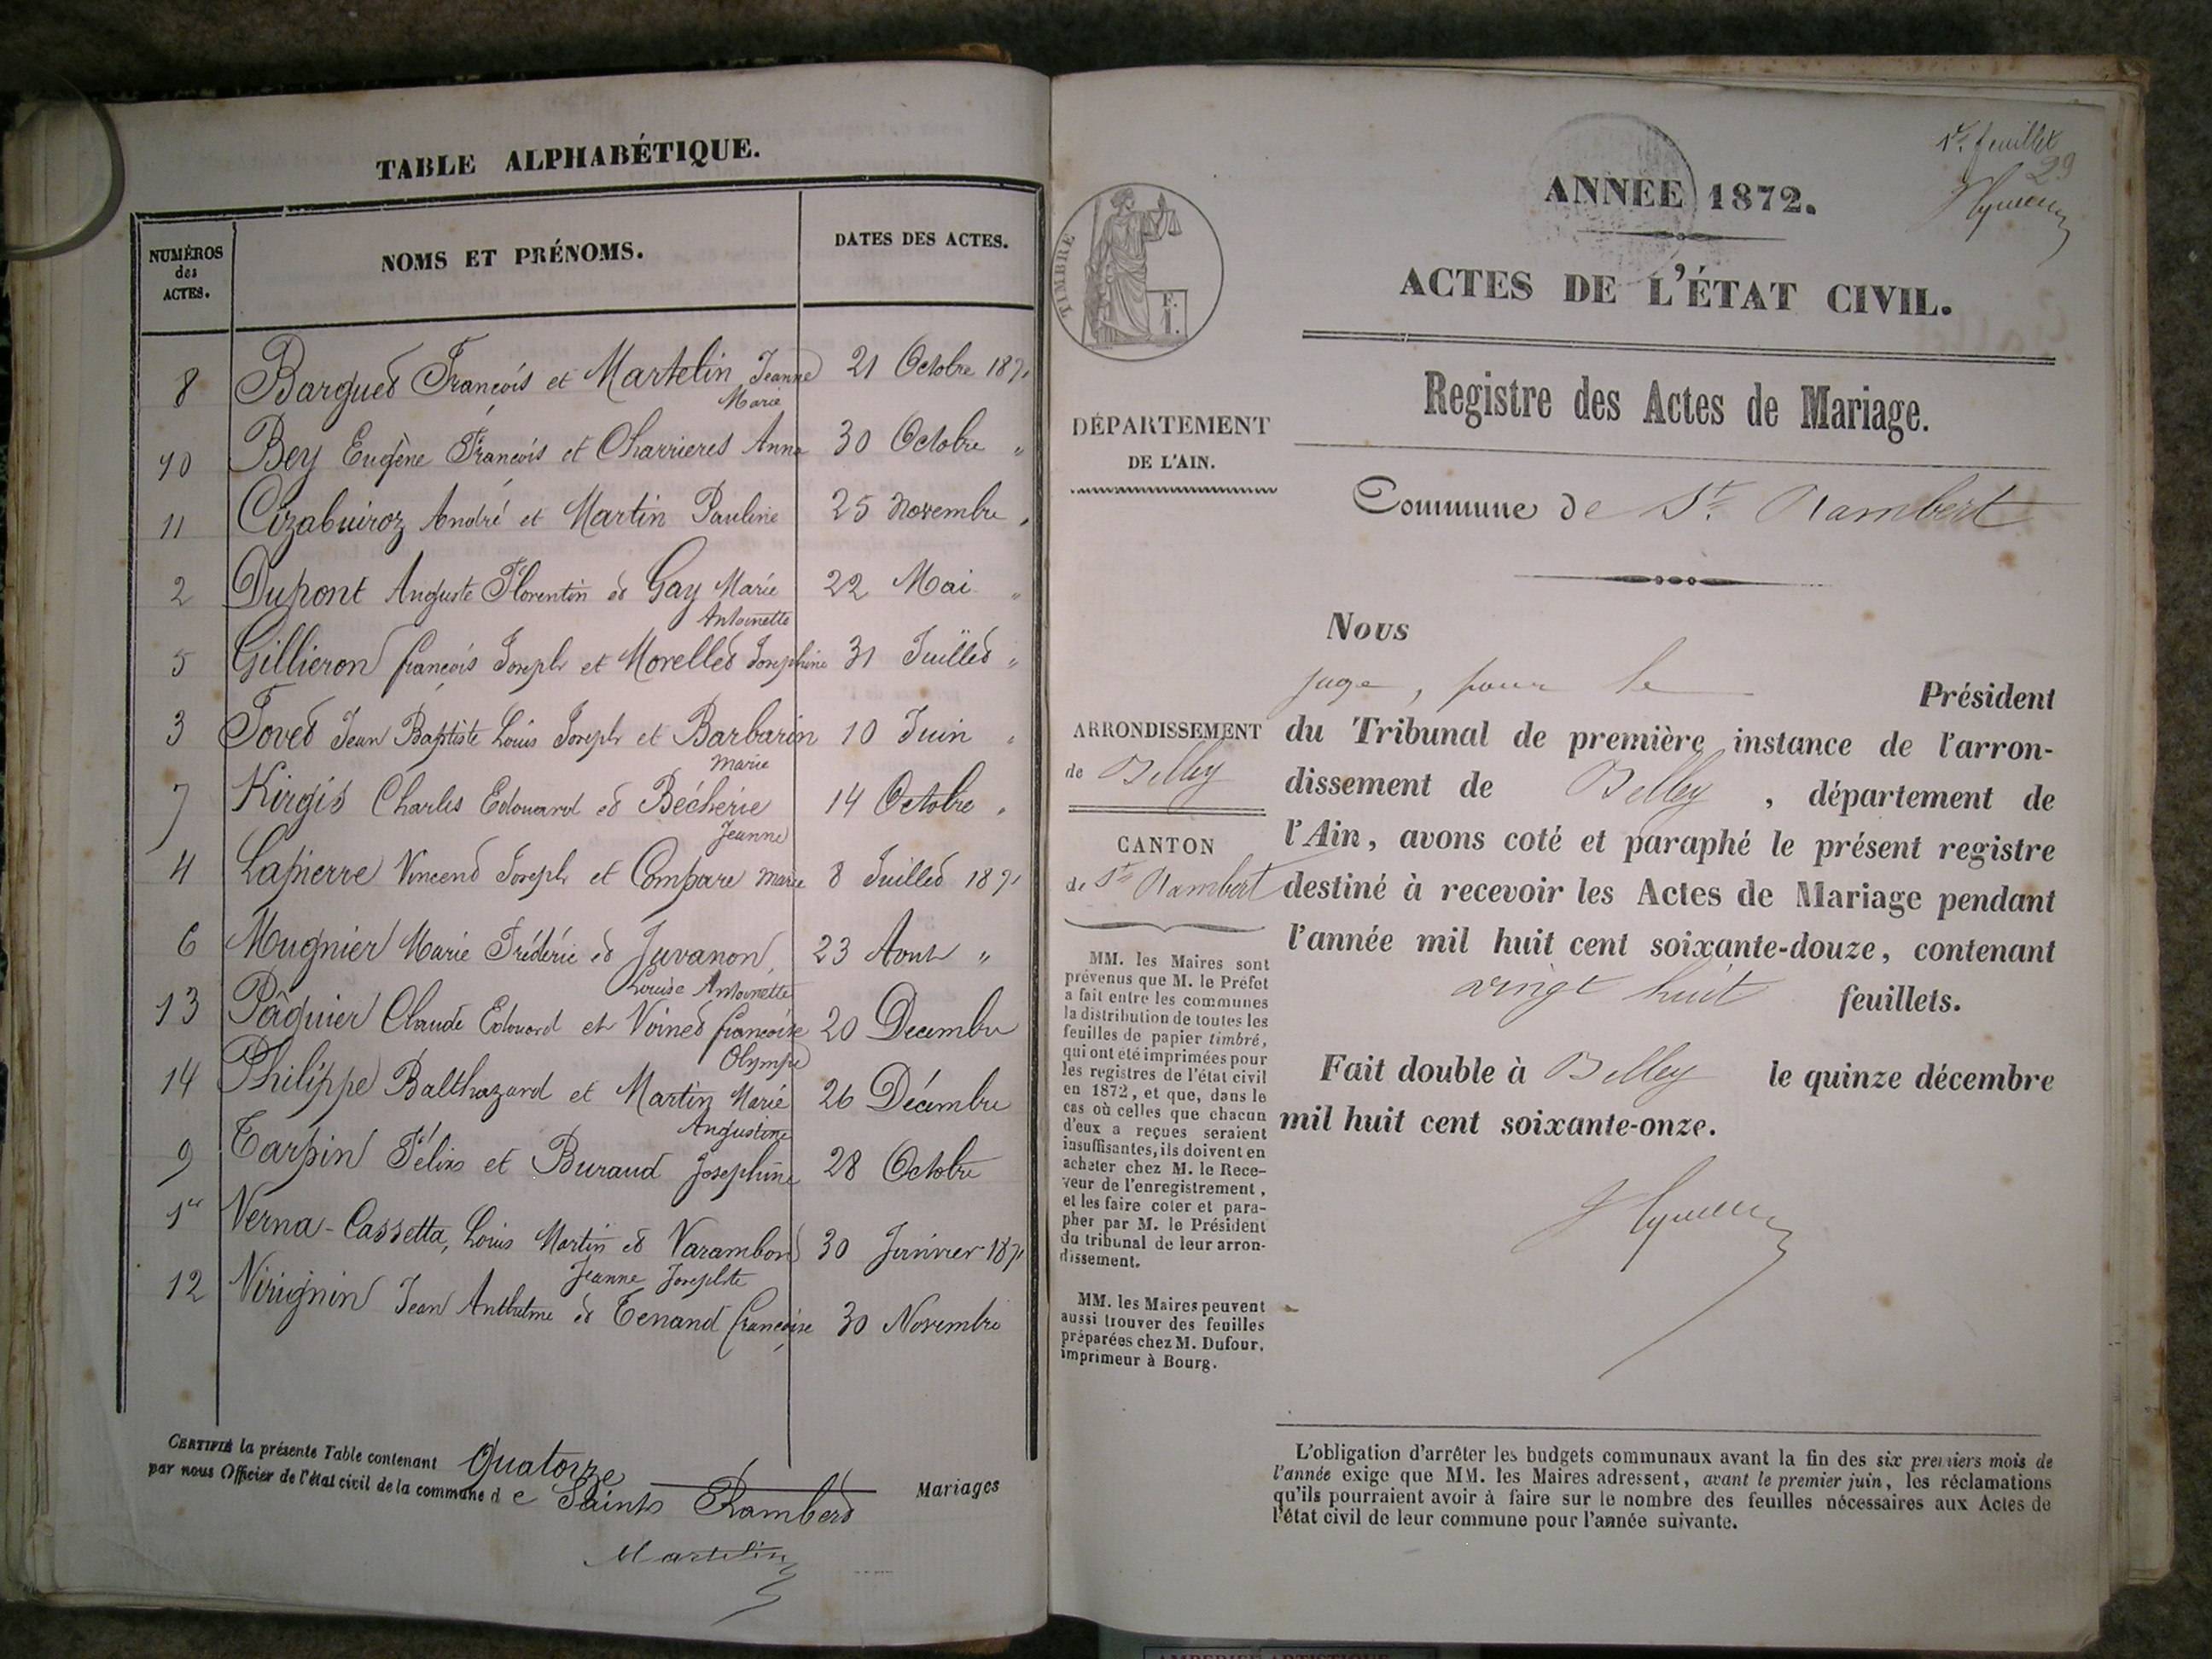 TABLE ALPHABÉTIQUE.
NUMÉROS des ACTES.
NOMS ET PRÉNOMS.
DATES DES ACTES.
8 Barguet François et Martelin Jeanne 21 Octobre 1871
Marie
10 Bey Eugène François et Charrieret Anna 30 Octobre "
11 Cizabuiroz André et Martin Pauline 25 Novembre "
2 Dupont Auguste Florentin et Gay Marie 22 Mai "
Antoinette
5 Gillieron François Joseph et Morellet Josephine 31 Juillet "
3 Jovet Jean Baptiste Louis Joseph et Barbarin 10 Juin "
Marie
7 Kirgis Charles Edouard et Bécherie 14 Octobre "
Jeanne
4 Lapierre Vincent Joseph et Compare Marie 8 Juillet 1871
6 Mugnier Marie Fréderic et Juvanon 23 Aout "
Louise Antoinette
13 Pâquier Claude Edouard et Voinet Françoise 20 Decembre
Olympe
14 Philippe Balthazard et Martin Marie 26 Décembre
Augustine
9 Tarpin Félix et Buraud Josephine 28 Octobre
1er Verna-Cassetta, Louis Martin et Varambon 30 Janvier 1871
Jeanne Josephte
12 Virignin Jean Anthelme et Tenand Françoise 30 Novembre
CERTIFIÉ la présente Table contenant Quatorze Mariages
par nous Officier de l'état civil de la commune de Saint Rambert
Martelin
1er feuillet
29
ANNEE 1872.
ACTES DE L'ÉTAT CIVIL.
TIMBRE
F.
1.
Registre des Actes de Mariage.
DÉPARTEMENT
DE L'AIN.
Commune de St. Rambert
Nous
juge, pour le Président
ARRONDISSEMENT
de Belley
CANTON
de St Rambert
du Tribunal de première instance de l'arron-
dissement de Belley, département de
l'Ain, avons coté et paraphé le présent registre
destiné à recevoir les Actes de Mariage pendant
l'année mil huit cent soixante-douze, contenant
vingt huit feuillets.
Fait double à Belley le quinze décembre
mil huit cent soixante-onze.
MM. les Maires sont
prévenus que M. le Préfet
a fait entre les communes
la distribution de toutes les
feuilles de papier timbré,
qui ont été imprimées pour
les registres de l'état civil
en 1872, et que, dans le
cas où celles que chacun
d'eux a reçues seraient
insuffisantes, ils doivent en
acheter chez M. le Rece-
veur de l'enregistrement,
et les faire coter et para-
pher par M. le Président
du tribunal de leur arron-
dissement.
MM. les Maires peuvent
aussi trouver des feuilles
préparées chez M. Dufour,
imprimeur à Bourg.
L'obligation d'arrêter les budgets communaux avant la fin des six premiers mois de
l'année exige que MM. les Maires adressent, avant le premier juin, les réclamations
qu'ils pourraient avoir à faire sur le nombre des feuilles nécessaires aux Actes de
l'état civil de leur commune pour l'année suivante.